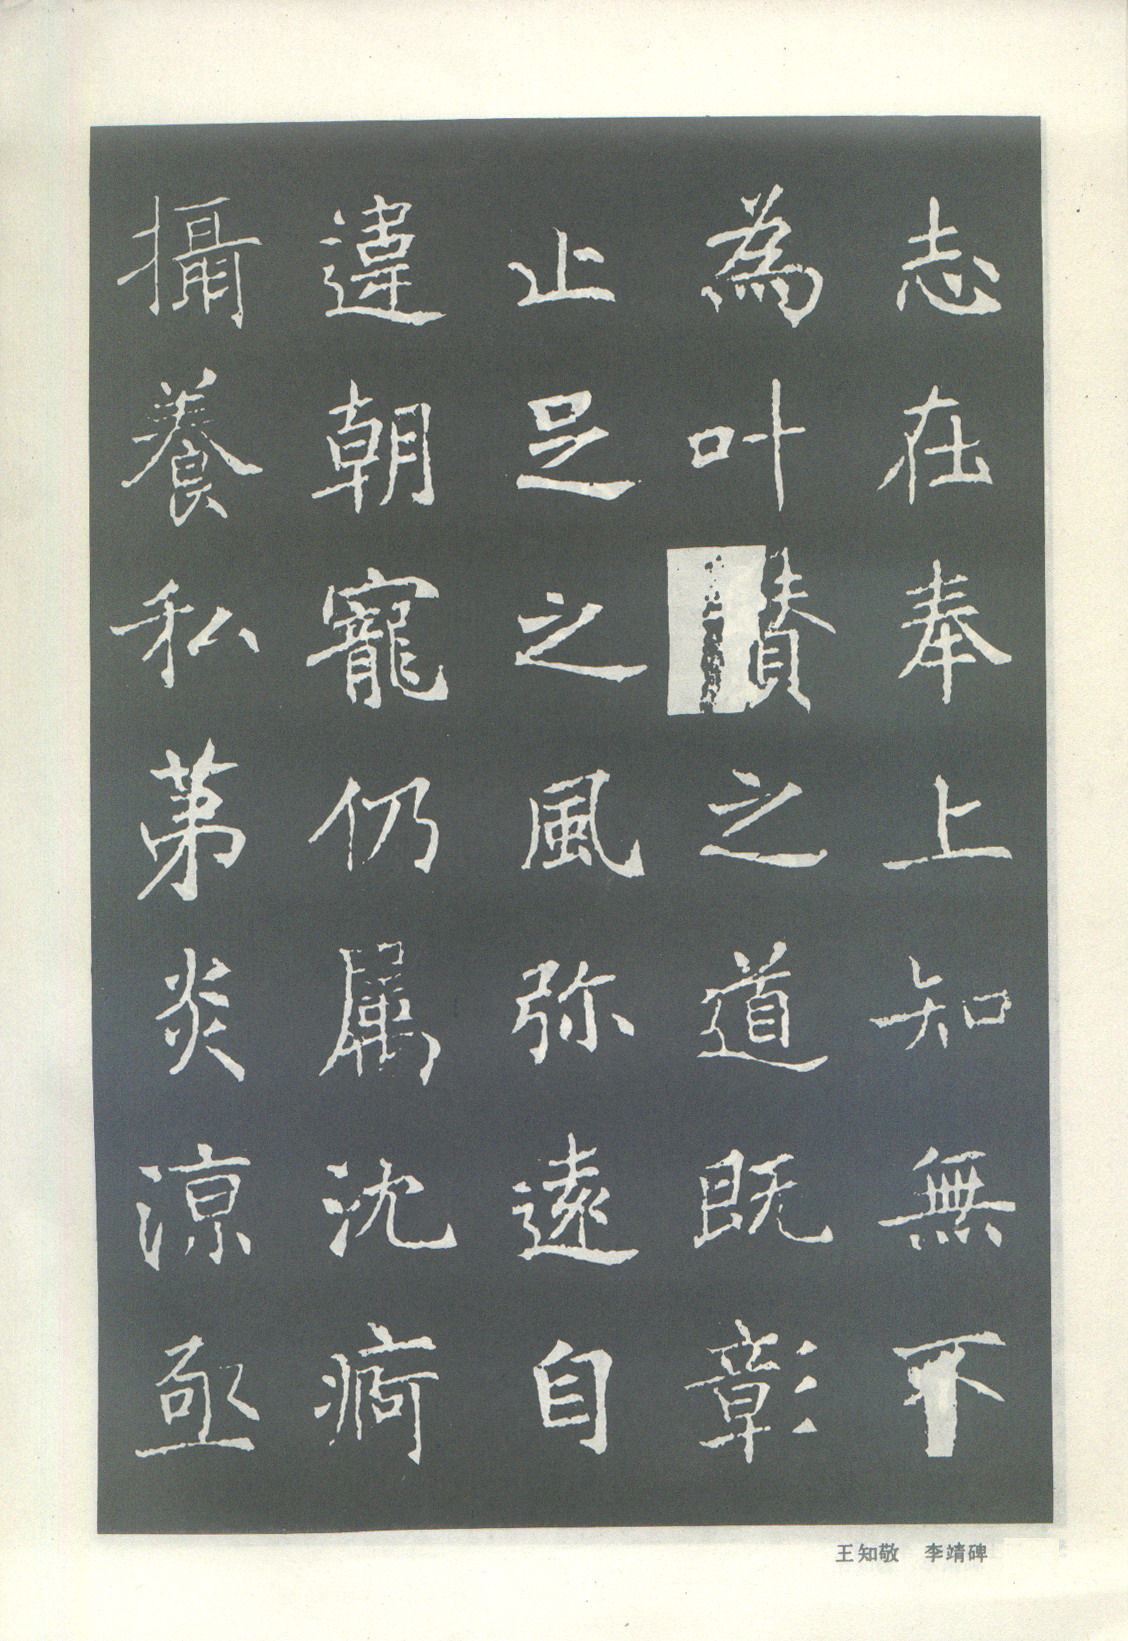 志在奉上知無不
為叶賛之道既彰
止足之風弥遠自
違朝寵仍属沈痾
攝養私第炎涼亟
王知敬 李靖碑